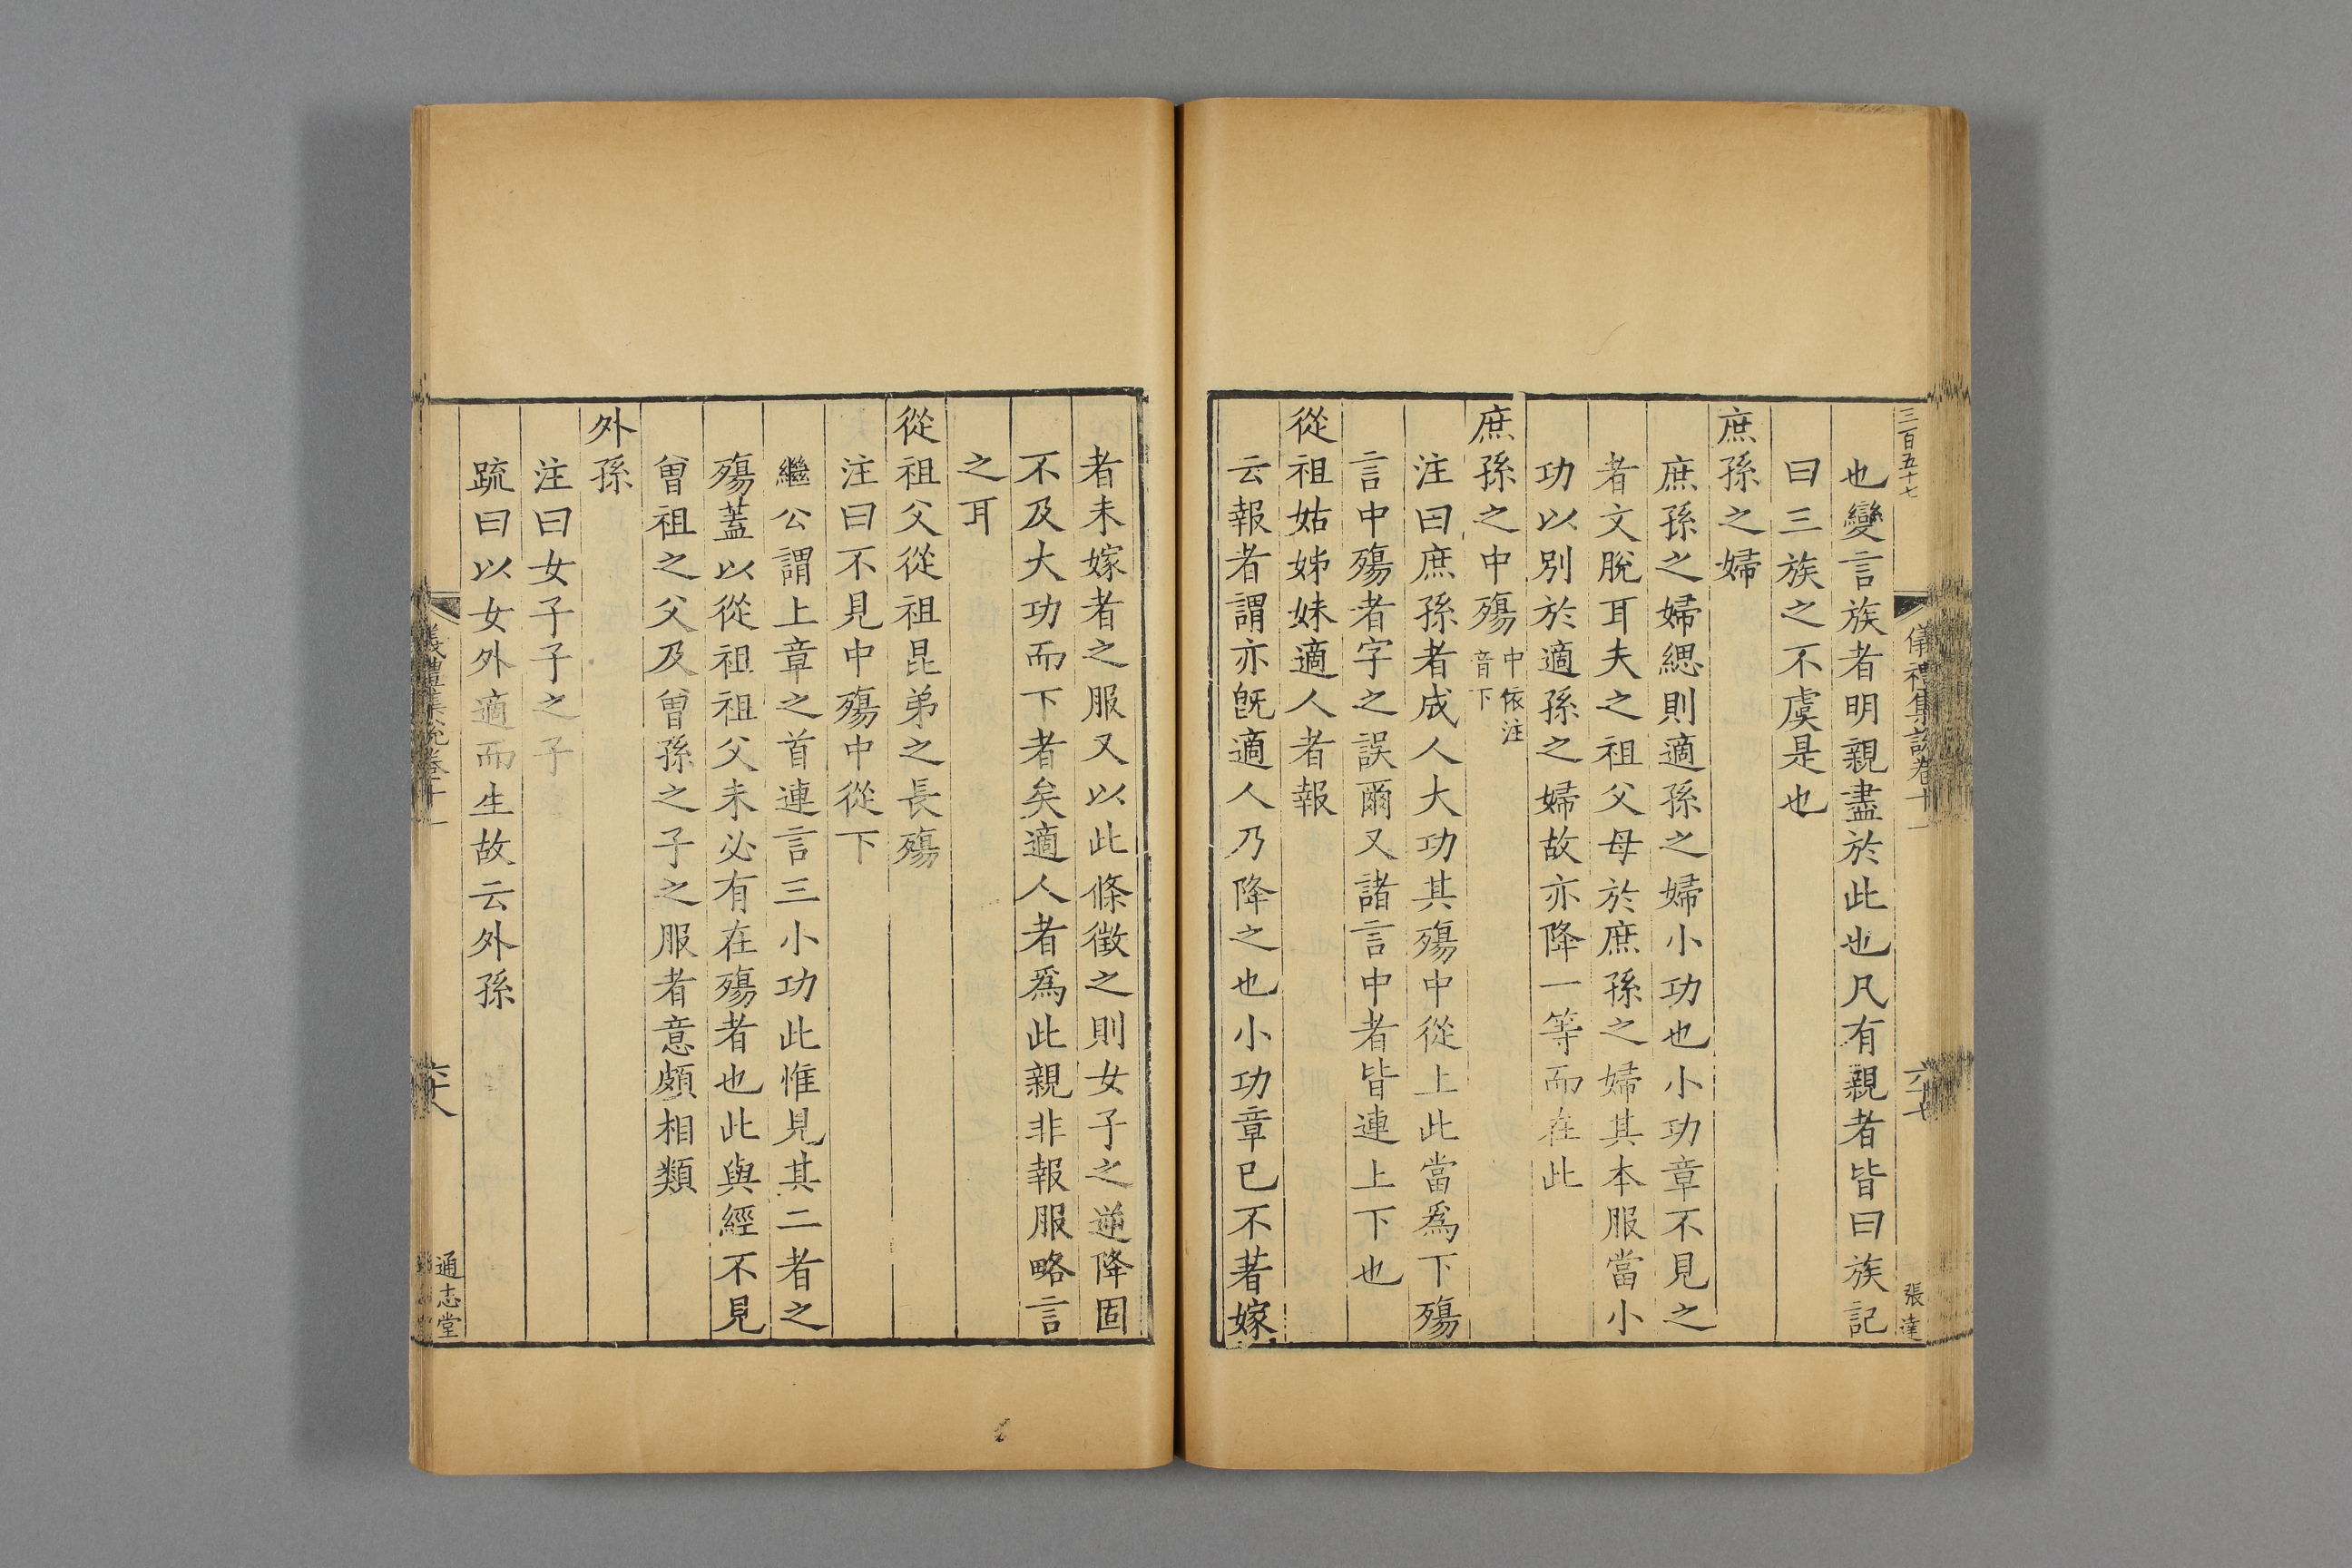 三百五十七
儀禮集說卷十一
六十七
張達
也變言族者明親盡於此也凡有親者皆曰族記
曰三族之不虞是也
庶孫之婦
庶孫之婦緦則適孫之婦小功也小功章不見之
者文脫耳夫之祖父母於庶孫之婦其本服當小
功以別於適孫之婦故亦降一等而在此
庶孫之中殤
中依注
音下
注曰庶孫者成人大功其殤中從上此當爲下殤
言中殤者字之誤爾又諸言中者皆連上下也
從祖姑姊妹適人者報
云報者謂亦旣適人乃降之也小功章已不著嫁
者未嫁者之服又以此條徵之則女子之逆降固
不及大功而下者矣適人者爲此親非報服略言
之耳
從祖父從祖昆弟之長殤
注曰不見中殤中從下
繼公謂上章之首連言三小功此惟見其二者之
殤蓋以從祖祖父未必有在殤者也此與經不見
曾祖之父及曾孫之子之服者意頗相類
外孫
注曰女子子之子
疏曰以女外適而生故云外孫
儀禮集說卷十一
六十八
通志堂